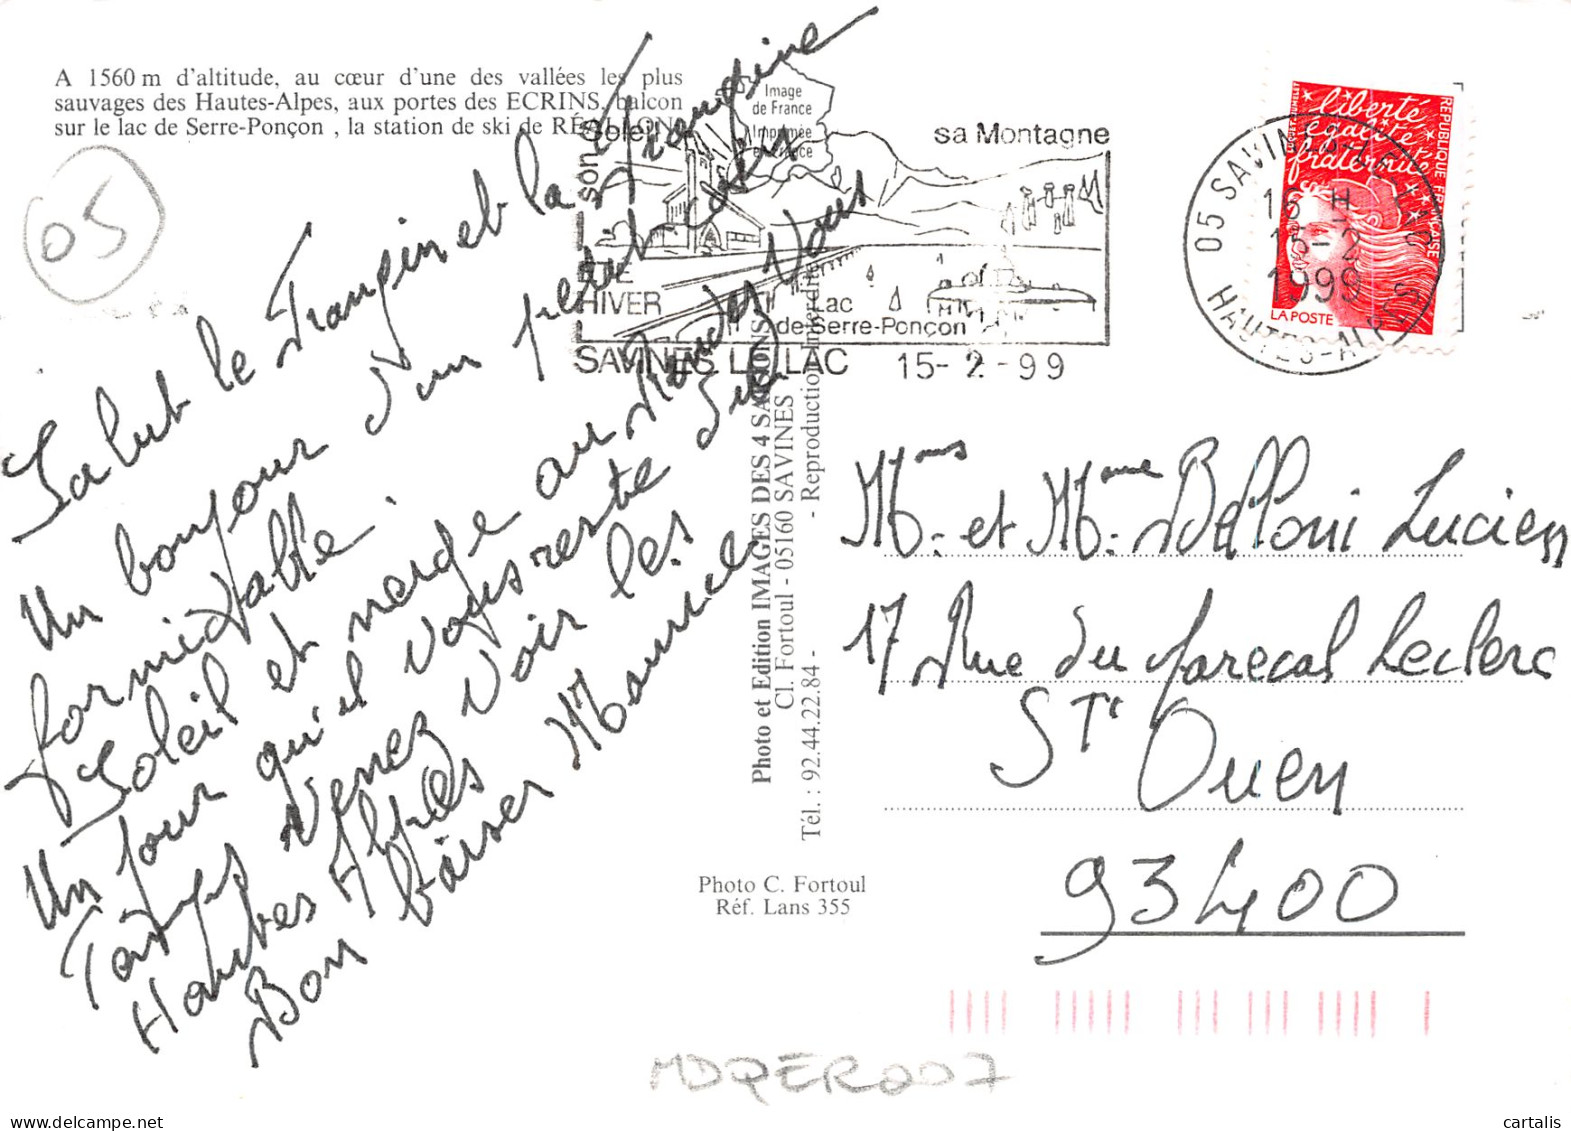 A 1560 m d'altitude, au cœur d'une des vallées les plus
sauvages des Hautes-Alpes, aux portes des ECRINS, balcon
sur le lac de Serre-Ponçon , la station de ski de RÉALLON.
05
Salut le Frangin et la Frangine
Un bonjour d'un petit coin
formidable.
Soleil et neige au Rendez Vous
Un jour qu'il vous reste du
Temps venez voir les
Hautes Alpes
Bon baiser Maurice
son Soleil
sa Montagne
Image
de France
Imprimée
en France
ETE
HIVER
Lac
de Serre-Ponçon
SAVINES LE LAC 15-2-99
05 SAVINES-LE-LAC
16 H
15-2
1999
HAUTES-ALPES
liberté
égalité
fraternité
RÉPUBLIQUE FRANÇAISE
LA POSTE
Photo et Edition IMAGES DES 4 SAISONS
Cl. Fortoul - 05160 SAVINES
Tél. : 92.44.22.84 - - Reproduction Interdite
Photo C. Fortoul
Réf. Lans 355
Mrs et Mme Belloni Lucien
17 Rue du Marecal Leclerc
St Ouen
93400
MDQER007
cartalis